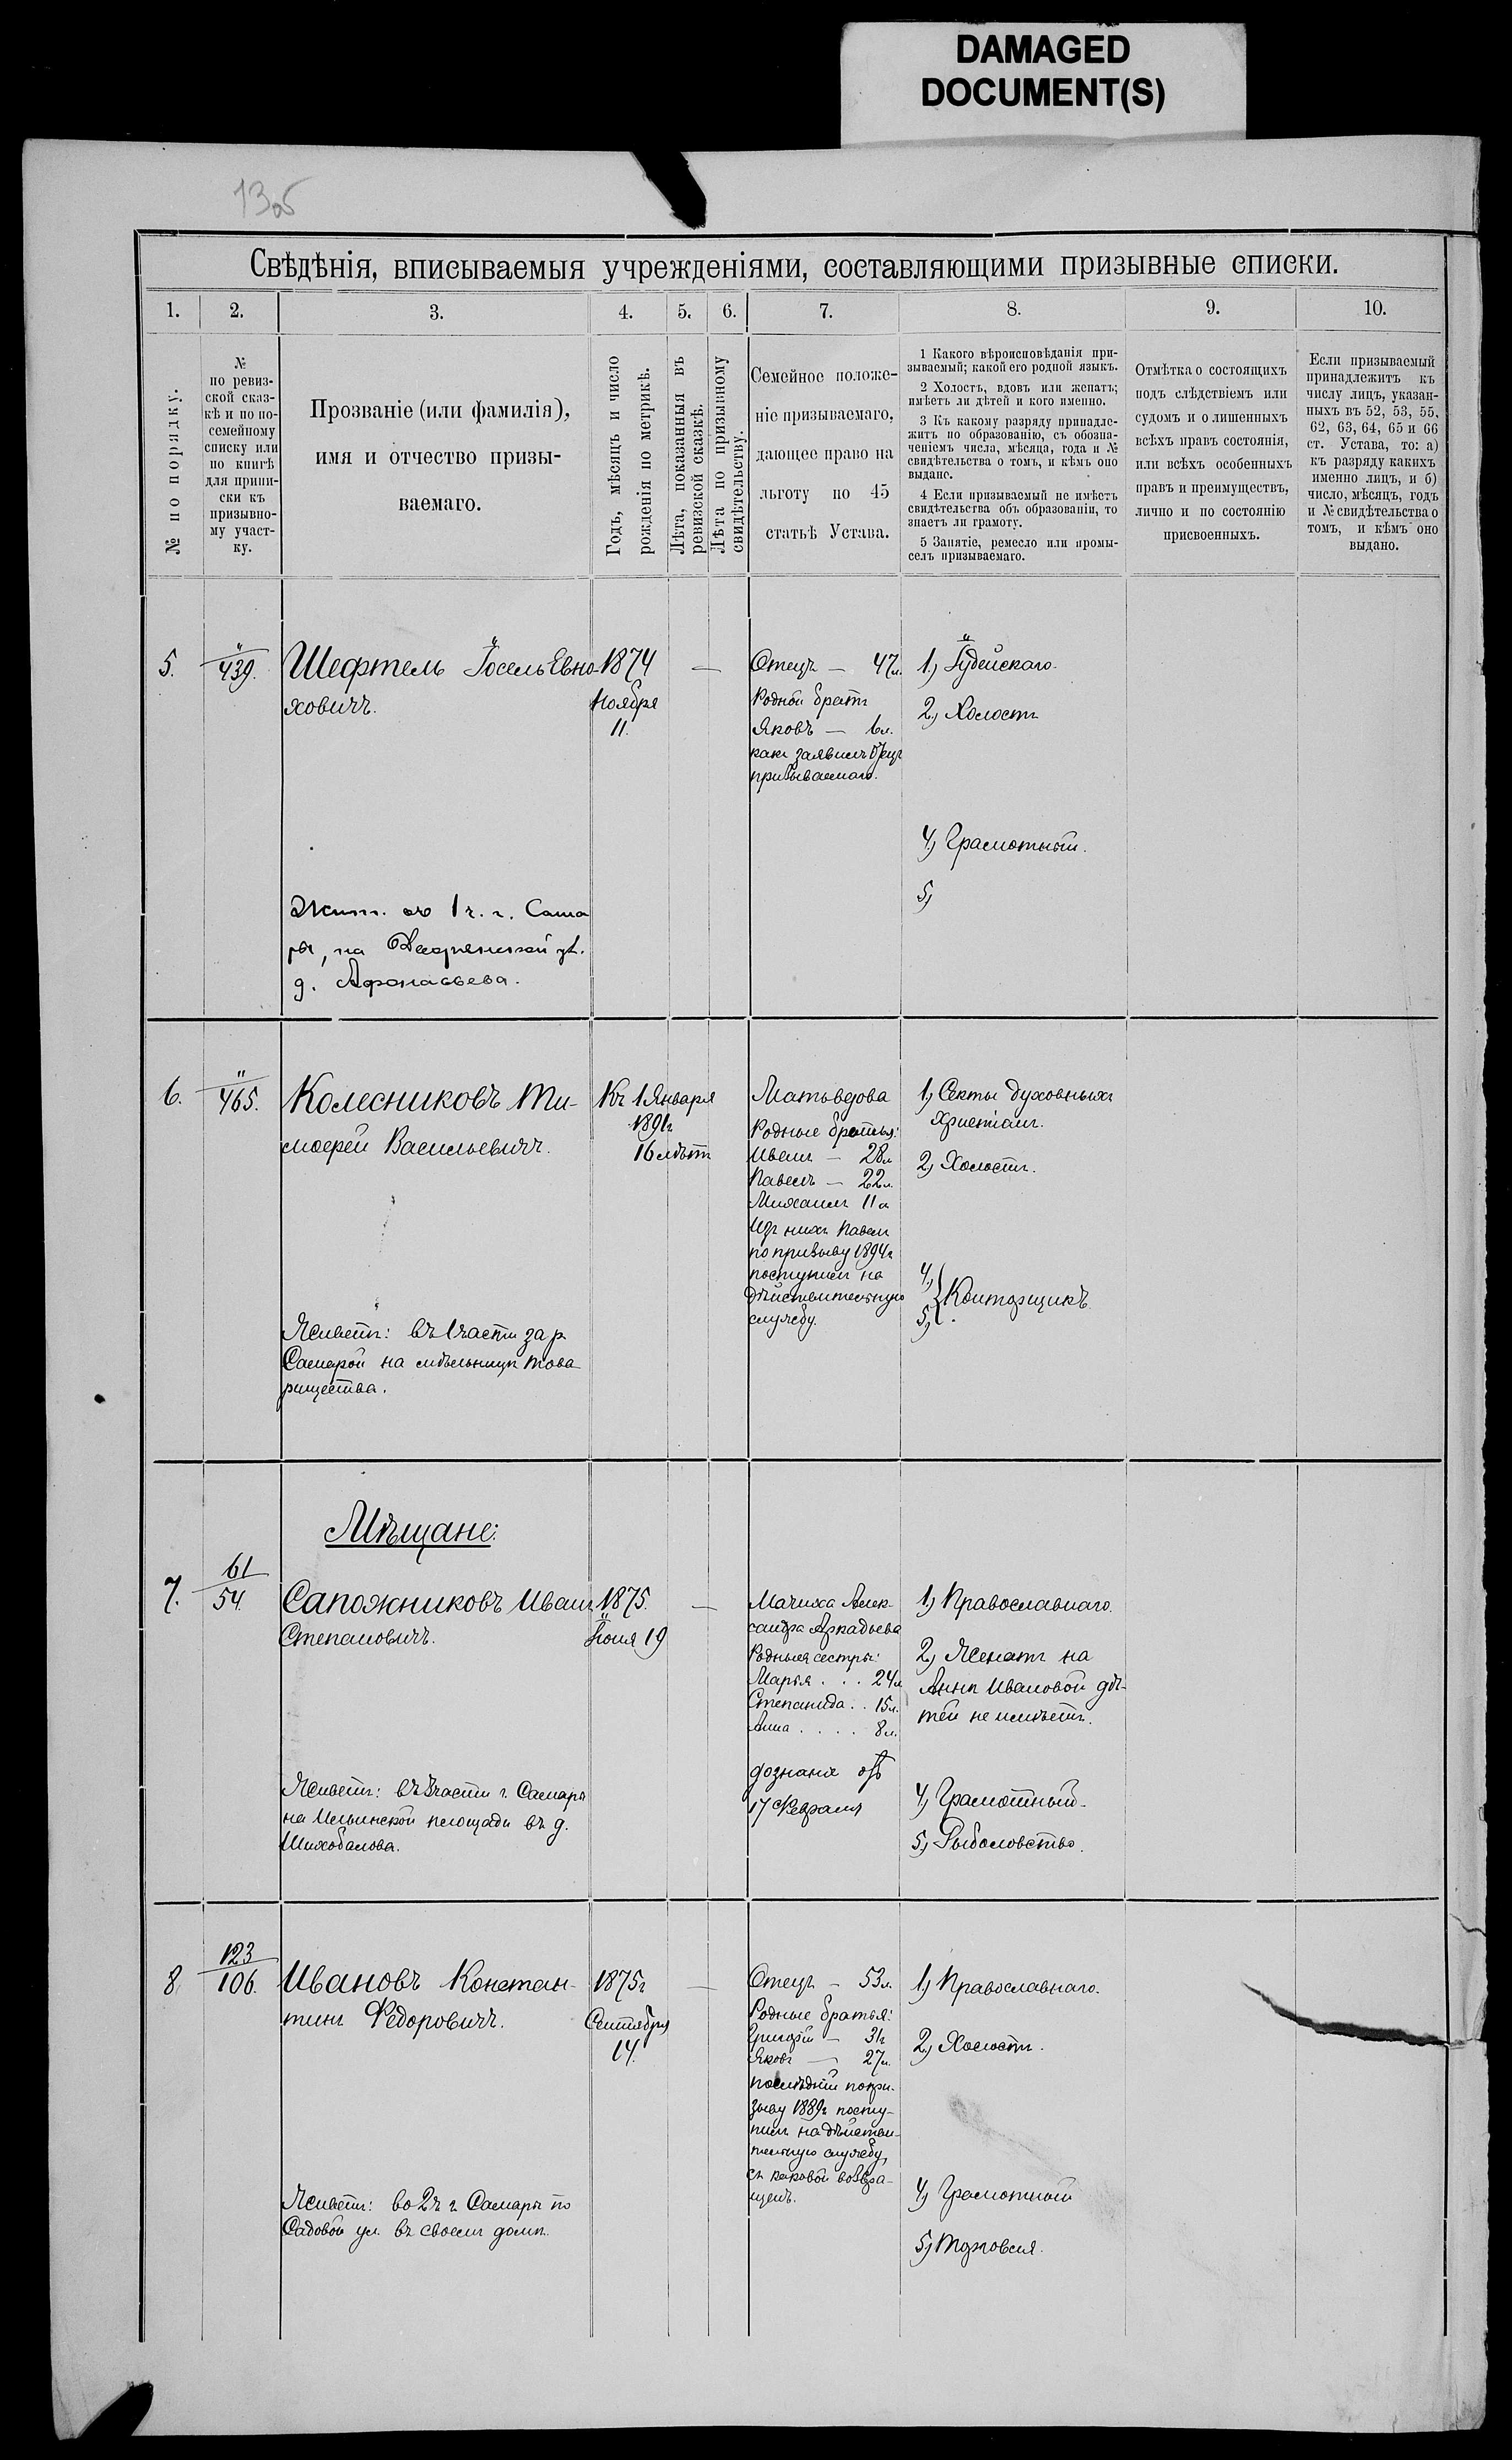 DAMAGED
DOCUMENT(S)
13об
Свѣдѣнія, вписываемыя учрежденіями, составляющими призывные списки.
1.
2.
3.
4.
5.
6.
7.
8.
9.
10.
№ по порядку.
№
по ревиз-
ской сказ-
кѣ и по по-
семейному
списку или
по книгѣ
для припи-
ски къ
призывно-
му участ-
ку.
Прозваніе (или фамилія),
имя и отчество призы-
ваемаго.
Годъ, мѣсяцъ и число
рожденія по метрикѣ.
Лѣта, показанныя въ
ревизской сказкѣ.
Лѣта по призывному
свидѣтельству.
Семейное положе-
ніе призываемаго,
дающее право на
льготу по 45
статьѣ Устава.
1 Какого вѣроисповѣданія при-
зываемый; какой его родной языкъ.
2 Холостъ, вдовъ или женатъ;
имѣетъ ли дѣтей и кого именно.
3 Къ какому разряду принадле-
житъ по образованію, съ обозна-
ченіемъ числа, мѣсяца, года и №
свидѣтельства о томъ, и кѣмъ оно
выдано.
4 Если призываемый не имѣетъ
свидѣтельства объ образованіи, то
знаетъ ли грамоту.
5 Занятіе, ремесло или промы-
селъ призываемаго.
Отмѣтка о состоящихъ
подъ слѣдствіемъ или
судомъ и о лишенныхъ
всѣхъ правъ состоянія,
или всѣхъ особенныхъ
правъ и преимуществъ,
лично и по состоянію
присвоенныхъ.
Если призываемый
принадлежитъ къ
числу лицъ, указан-
ныхъ въ 52, 53, 55,
62, 63, 64, 65 и 66
ст. Устава, то: а)
къ разряду какихъ
именно лицъ, и б)
число, мѣсяцъ, годъ
и № свидѣтельства о
томъ, и кѣмъ оно
выдано.
5.
"
439.
Шефтель Іосель Евно-
ховичъ.
1874
Ноября
11.
—
Отецъ — 47 л.
Родной братъ
Яковъ — 6 л.
какъ заявилъ Отецъ
призываемаго.
1) Іудейскаго.
2) Холостъ
4) Грамотный.
5)
Жит. въ 1 ч. г. Сама
ры, на Дворянской ул.
д. Афонасьева.
6.
"
465.
Колесниковъ Ти-
мофей Васильевичъ.
Къ 1 Января
1891 г
16 лѣтъ
Родные братья:
Иванъ — 28 л
Павелъ — 22 л.
Михаилъ 11 л
Изъ нихъ Павелъ
по призыву 1894 г
поступилъ на
дѣйствительную
службу.
1) Секты духовныхъ
христіанъ.
2) Холостъ.
4)
5)
Конторщикъ.
Живетъ: въ 1 части за р.
Самарой на мельницѣ Това
рищества.
Мѣщане:
7.
61
54.
Сапожниковъ Иванъ
Степановичъ.
1875.
Іюня 19
—
Мачиха Алек-
сандра Аркадьева
Родныя сестры:
Марья . . . 24 л
Степанида . . 15 л.
Анна . . . . 8 л.
дознаніе отъ
17 Февраля
1) Православнаго.
2) Женатъ на
Аннѣ Ивановой дѣ-
тей не имѣетъ.
4) Грамотный.
5) Рыболовство.
Живетъ: въ части г. Самары
на Ильинской площади въ д.
Шихобалова.
8
123
106.
Ивановъ Констан-
тинъ Федоровичъ.
1875 г
Сентября
14.
—
Отецъ — 53 л.
Родные братья:
Григорій — 31 г
Яковъ — 27 л.
послѣдній по при-
зыву 1889 г посту-
пилъ на дѣйстви-
тельную службу,
съ каковой возвра-
щенъ.
1) Православнаго.
2) Холостъ.
4) Грамотный
5) Торговля.
Живетъ: во 2 ч г. Самары по
Садовой ул. въ своемъ домѣ.